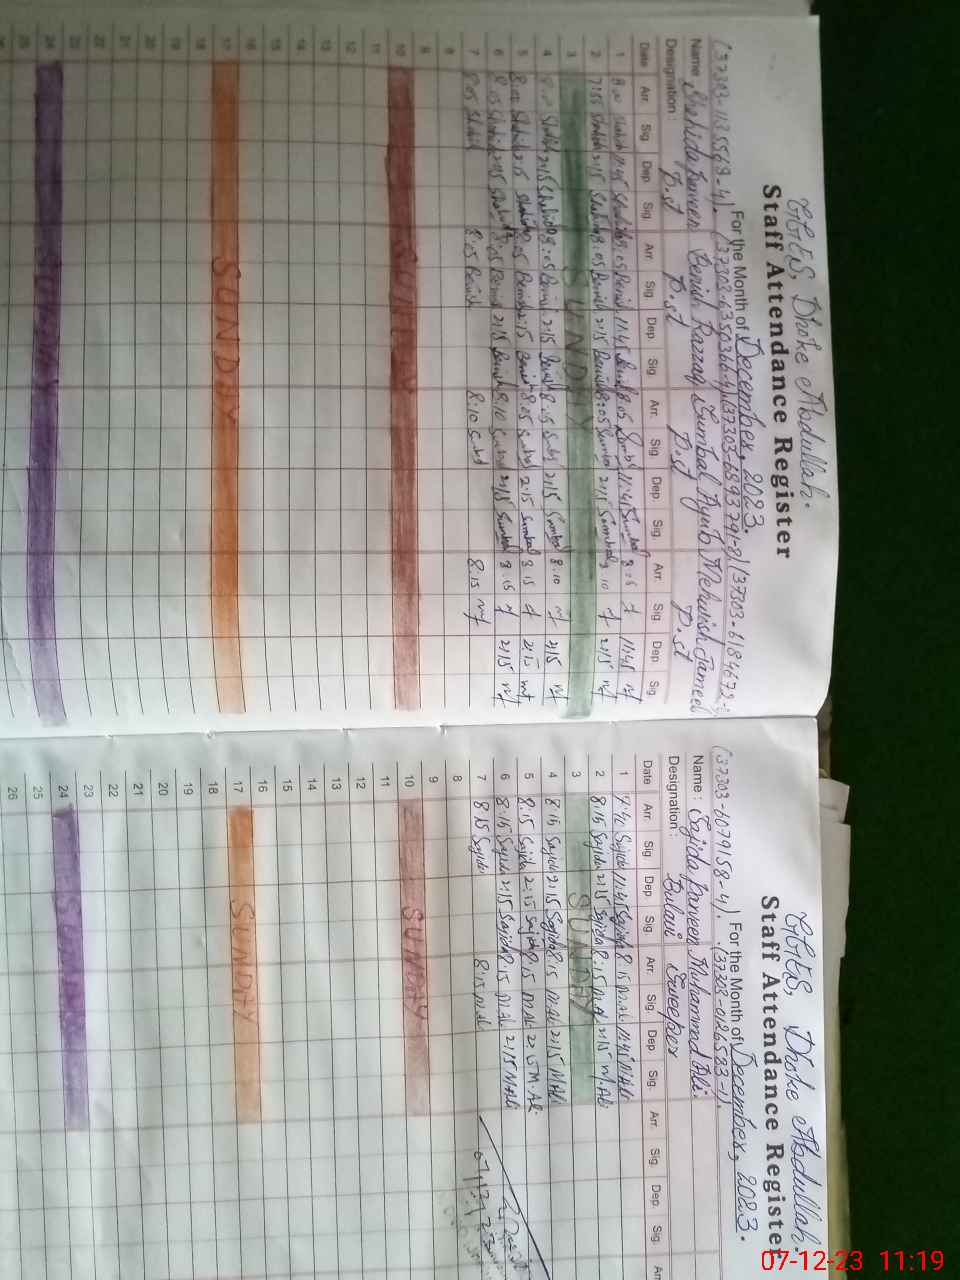 GGES, Dhoke Abdullah.
Staff Attendance Register
For the Month of December, 2023.
(37303-1135569-4) (37303-6350366-4) (37303-6893791-8) (37303-6184672-
Name Shahida Parveen Benish Razzaq Sumbal Ayub Mehwish Jameel
Designation: P.st P.st P.st P.st
Date Arr. Sig. Dep. Sig. Arr. Sig. Dep. Sig. Arr. Sig. Dep. Sig. Arr. Sig. Dep. Sig.
1 8:00 Shahida 11:45 Shahida 8:05 Benish 11:45 Benish 8:05 Sumbal 11:45 Sumbal 8:15 11:45
2 7:55 Shahida 2:15 Shahida 8:05 Benish 2:15 Benish 8:05 Sumbal 2:15 Sumbal 8:10 2:15
3 SUNDAY
4 8:00 Shahida 2:15 Shahida 8:05 Benish 2:15 Benish 8:05 Sumbal 2:15 Sumbal 8:10 2:15
5 8:00 Shahida 2:15 Shahida 8:05 Benish 2:15 Benish 8:05 Sumbal 2:15 Sumbal 8:15 2:15
6 8:05 Shahida 2:15 Shahida 8:05 Benish 2:15 Benish 8:10 Sumbal 2:15 Sumbal 8:15 2:15
7 8:05 Shahida 8:05 Benish 8:10 Sumbal 8:15
8
9
10 SUNDAY
11
12
13
14
15
16
17 SUNDAY
18
19
20
21
22
23
24 SUNDAY
25
GGES, Dhoke Abdullah.
Staff Attendance Register
For the Month of December, 2023.
(37303-6079158-4). (37303-0126583-1).
Name: Sajida Parveen Muhammad Ali.
Designation: Bulavi Sweeper
Date Arr. Sig. Dep. Sig. Arr. Sig. Dep. Sig. Arr. Sig. Dep. Sig. Arr
1 Sajida 11:45 Sajida 8:15 M.Ali 11:45 M.Ali
2 8:15 Sajida 2:15 Sajida 8:15 M.Ali 2:15 M.Ali
3 SUNDAY
4 8:15 Sajida 2:15 Sajida 8:15 M.Ali 2:15 M.Ali
5 8:15 Sajida 2:15 Sajida 8:15 M.Ali 2:15 M.Ali
6 8:15 Sajida 2:15 Sajida 8:15 M.Ali 2:15 M.Ali
7 8:15 Sajida 8:15 M.Ali
8
9
10 SUNDAY
11
12
13
14
15
16
17 SUNDAY
18
19
20
21
22
23
24 SUNDAY
25
26
07-12-23 11:19